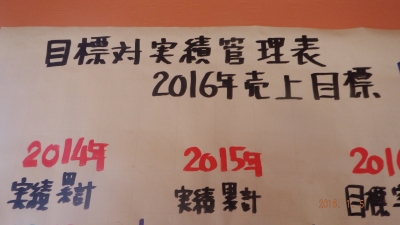 目標対実績管理表
2016年売上目標
2014年 2015年 201
実績累計 実績累計 目標